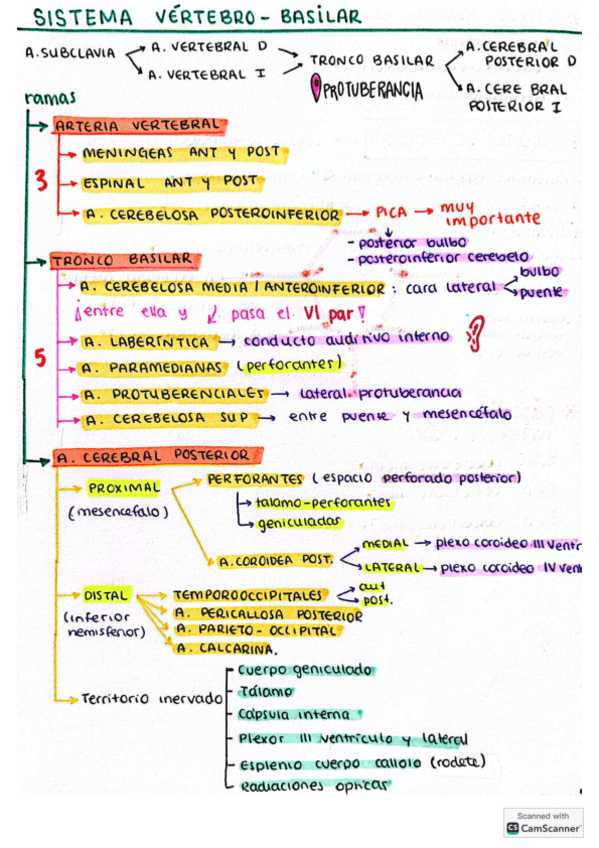 SISTEMA VÉRTEBRO-BASILAR
A.SUBCLAVIA
A. VERTEBRAL D
A. VERTEBRAL I
TRONCO BASILAR
PROTUBERANCIA
A.CEREBRAL
POSTERIOR D
A. CERE BRAL
POSTERIOR I
ramas
ARTERIA VERTEBRAL
3
MENINGEAS ANT Y POST
ESPINAL ANT Y POST
A. CEREBELOSA POSTEROINFERIOR → PICA → muy
importante
- posterior bulbo
- posteroinferior cerebelo
TRONCO BASILAR
5
A. CEREBELOSA MEDIA / ANTEROINFERIOR : cara lateral
bulbo
puente
¡entre ella y ↙ pasa el VI par!
A. LABERÍNTICA → conducto auditivo interno
A. PARAMEDIANAS (perforantes)
A. PROTUBERENCIALES → lateral protuberancia
A. CEREBELOSA SUP → entre puente y mesencéfalo
A. CEREBRAL POSTERIOR
PROXIMAL
(mesencefalo)
PERFORANTES (espacio perforado posterior)
talamo-perforantes
geniculadas
A. COROIDEA POST.
MEDIAL → plexo coroideo III Ventr
LATERAL → plexo coroideo IV Vent
DISTAL
(inferior
hemisferior)
TEMPOROOCCIPITALES
ant
post.
A. PERICALLOSA POSTERIOR
A. PARIETO-OCCIPITAL
A. CALCARINA.
Territorio inervado
- Cuerpo geniculado
- Tálamo
- Cápsula interna
- Plexor III ventrículo y lateral
- Esplenio cuerpo calloso (rodete)
- Radiaciones opticas
Scanned with
CS CamScanner